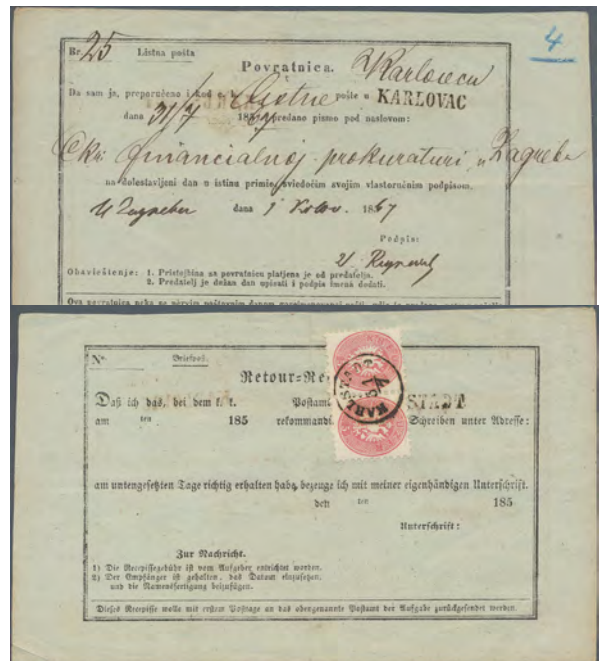 Br. 25 Listna pošta
4
Povratnica.
Karlovcu
Da sam je, preporučeno i kod c. k. pošte u KARLOVAC
dana 31/7 185 67 predano pismo pod naslovom:
Ckr financialnoj prokuraturi u Zagrebu
na dolestavljeni dan u istinu primio, sviedočim svojim vlastoručnim podpisom.
U Zagrebu dana 1 Kolov. 1867
Podpis:
Obaviештenje: 1. Pristojbina za povratnicu platjena je od predatelja.
2. Predatelj je dužan dan upisati i podpis imena dodati.
Ova povratnica neka se
N° Briefpost
Retour-Re
Daß ich das, bei dem k. k. Postamt STADT
am ten 185 rekommandi Schreiben unter Adresse:
KARLSTADT
am untengesetzten Tage richtig erhalten habe, bezeuge ich mit meiner eigenhändigen Unterschrift.
den ten 185
Unterschrift:
Zur Nachricht.
1) Die Recepissegebühr ist vom Aufgeber entrichtet worden.
2) Der Empfänger ist gehalten, das Datum einzusetzen,
und die Namensfertigung beizufügen.
Dieses Recepisse wolle mit erstem Posttage an das obengenannte Postamt der Aufgabe zurückgesendet werden.